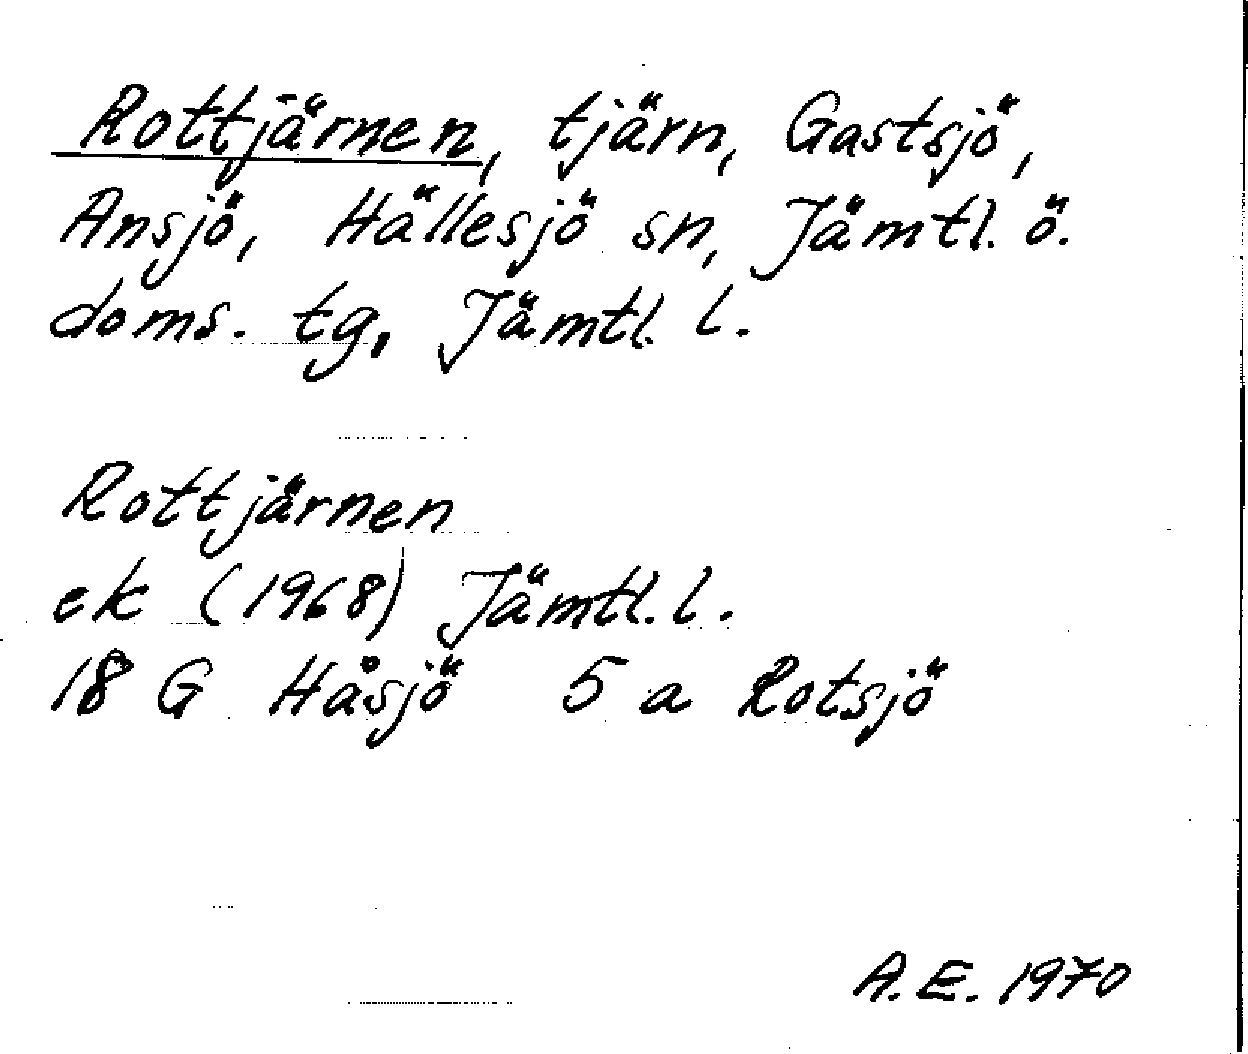 Rottjärnen, tjärn, Gastsjö,
Ansjö, Hällesjö sn, Jämtl. ö.
doms. tg, Jämtl. l.
Rottjärnen
ek (1968) Jämtl. l.
18 G Håsjö 5 a Rotsjö
A.E. 1970